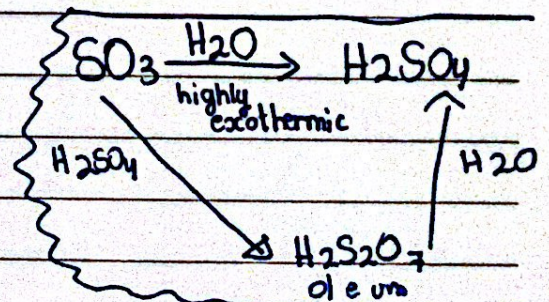 SO3 H2O H2SO4
highly
exothermic
H2SO4 H2O
H2S2O7
oleum